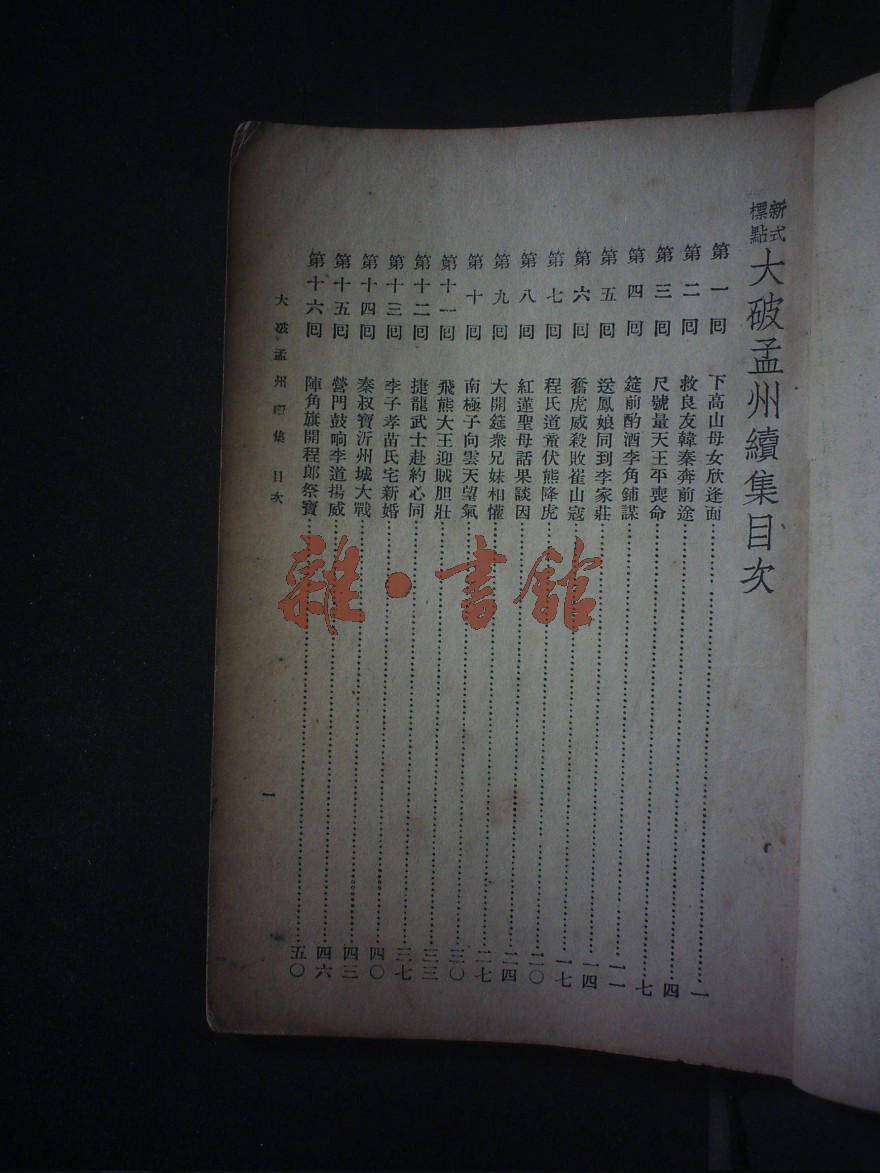 新式標點大破孟州續集目次
第一回 下高山母女欣逢面 一
第二回 救良友韓秦奔前途 四
第三回 尺號量天王平喪命 七
第四回 筵前酌酒李角鋪謀 一一
第五回 送鳳娘同到李家莊 一四
第六回 奮虎威殺敗崔山寇 一七
第七回 程氏道童伏熊降虎 二〇
第八回 紅蓮聖母話果談因 二四
第九回 大開筵衆兄妹相懽 二七
第十回 南極子向雲天望氣 三〇
第十一回 飛熊大王迎賊胆壯 三三
第十二回 捷龍武士赴約心同 三七
第十三回 李子孝苗氏宅新婚 四〇
第十四回 秦叔寶沂州城大戰 四三
第十五回 營門鼓响李道揚威 四六
第十六回 陣角旗開程郎祭寶 五〇
大破孟州續集 目次
一
雜·書館